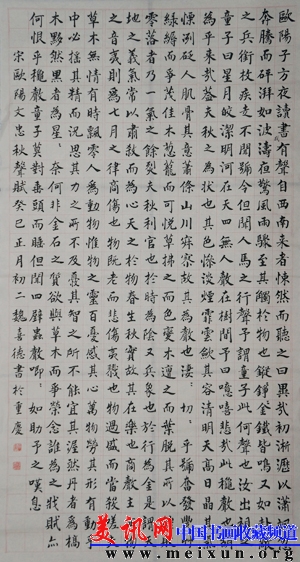 歐陽子方夜讀書聞有聲自西南來者悚然而聽之曰異哉初淅瀝以瀟颯忽
奔騰而砰湃如波濤夜驚風雨驟至其觸於物也鏦鏦錚錚金鐵皆鳴又如赴敵
之兵銜枚疾走不聞號令但聞人馬之行聲予謂童子此何聲也汝出視之
童子曰星月皎潔明河在天四無人聲聲在樹間予曰噫嘻悲哉此秋聲也胡
為乎來哉蓋夫秋之為狀也其色慘淡煙霏雲斂其容清明天高日晶其氣
慄冽砭人肌骨其意蕭條山川寂寥故其為聲也淒淒切切呼號奮發豐草
綠縟而爭茂佳木蔥籠而可悅草拂之而色變木遭之而葉脫其所以摧敗
零落者乃一氣之餘烈夫秋刑官也於時為陰又兵象也於行為金是謂天
地之義氣常以肅殺而為心天之於物春生秋實故其在樂也商聲主西方
之音夷則為七月之律商傷也物既老而悲傷夷戮也物過盛而當殺嗟夫
草木無情有時飄零人為動物惟物之靈百憂感其心萬物勞其形有動于
中必搖其精而況思其力之所不及憂其智之所不能宜其渥然丹者為槁
木黟然黑者為星星奈何非金石之質欲與草木而爭榮念誰為之戕賊亦
何恨乎秋聲童子莫對垂頭而睡但聞四壁蟲聲唧唧如助予之嘆息
宋歐陽文忠秋聲賦癸巳正月初二魏喜德書於重慶
美讯网 中国书画收藏频道
www.meixun.org